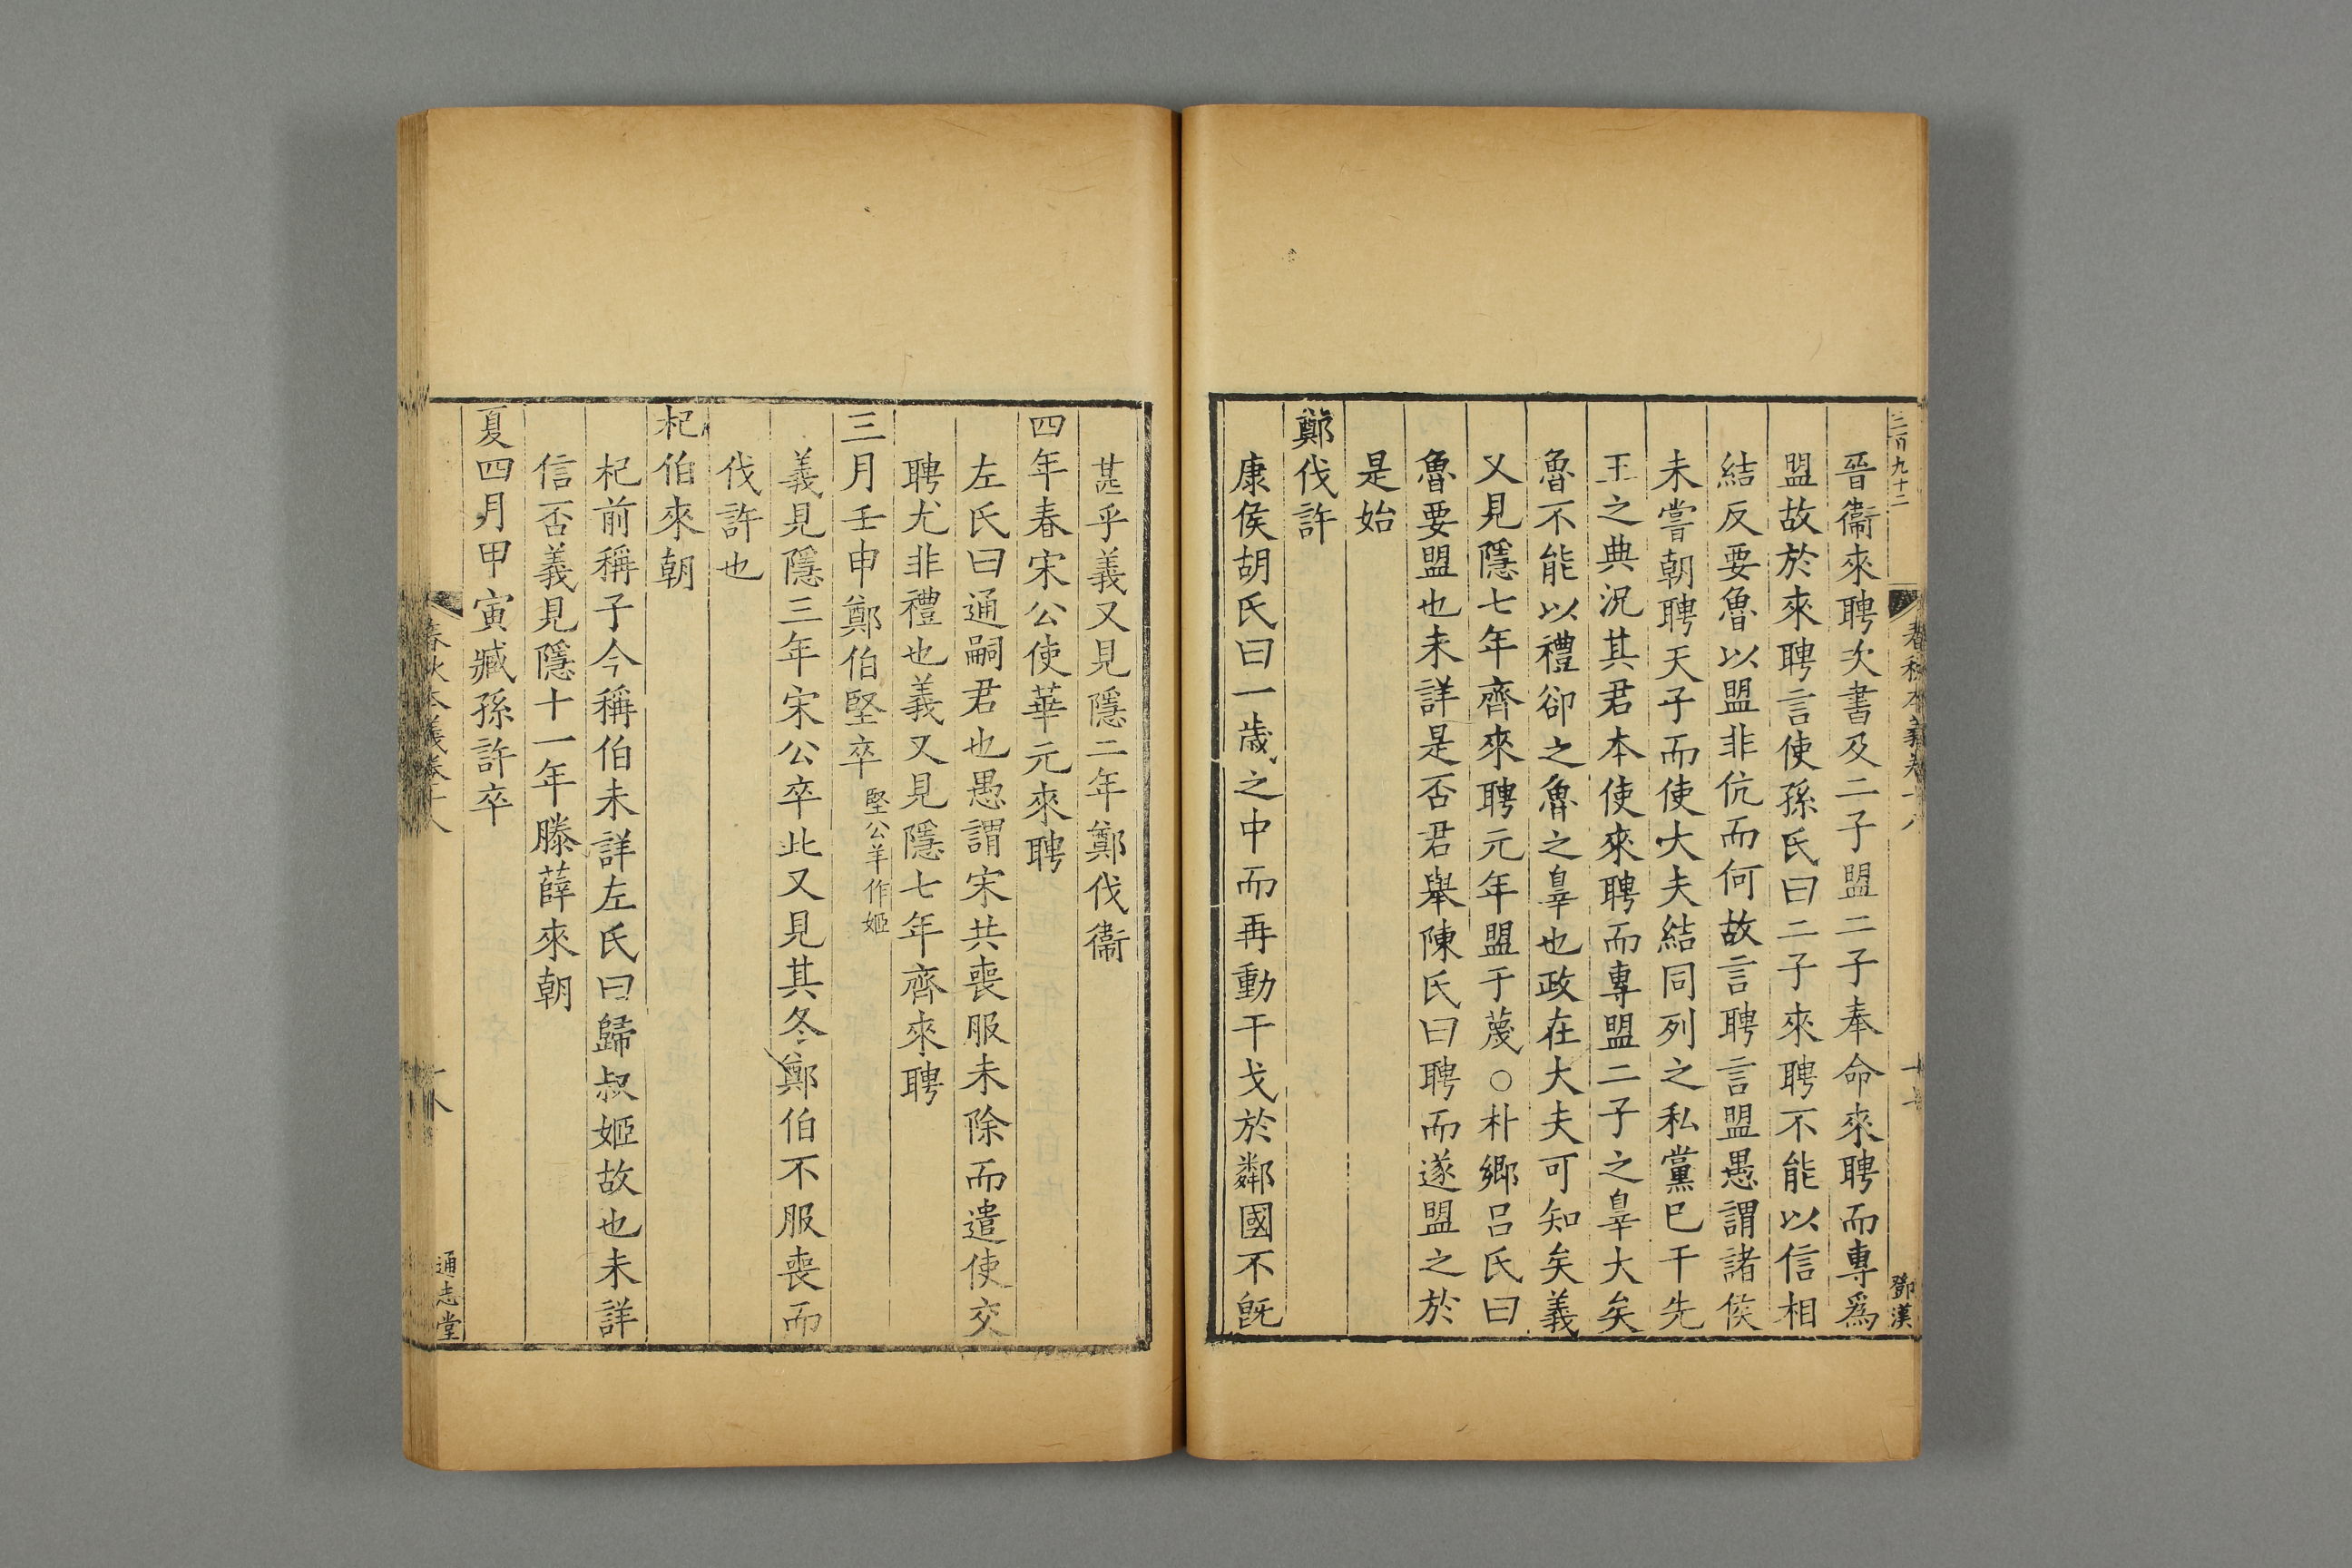 三百九十二
春秋本義卷十八
鄧漢
晉衞來聘次書及二子盟二子奉命來聘而專爲
盟故於來聘言使孫氏曰二子來聘不能以信相
結反要魯以盟非伉而何故言聘言盟愚謂諸侯
未嘗朝聘天子而使大夫結同列之私黨巳干先
王之典況其君本使來聘而專盟二子之辠大矣
魯不能以禮卻之魯之辠也政在大夫可知矣義
又見隱七年齊來聘元年盟于蔑○朴鄉呂氏曰
魯要盟也未詳是否君舉陳氏曰聘而遂盟之於
是始
鄭伐許
康侯胡氏曰一歲之中而再動干戈於鄰國不旣
甚乎義又見隱二年鄭伐衞
四年春宋公使華元來聘
左氏曰通嗣君也愚謂宋共喪服未除而遣使交
聘尤非禮也義又見隱七年齊來聘
三月壬申鄭伯堅卒 堅公羊作姬
義見隱三年宋公卒此又見其冬鄭伯不服喪而
伐許也
杞伯來朝
杞前稱子今稱伯未詳左氏曰歸叔姬故也未詳
信否義見隱十一年滕薛來朝
夏四月甲寅臧孫許卒
春秋本義卷十八
十八
通志堂